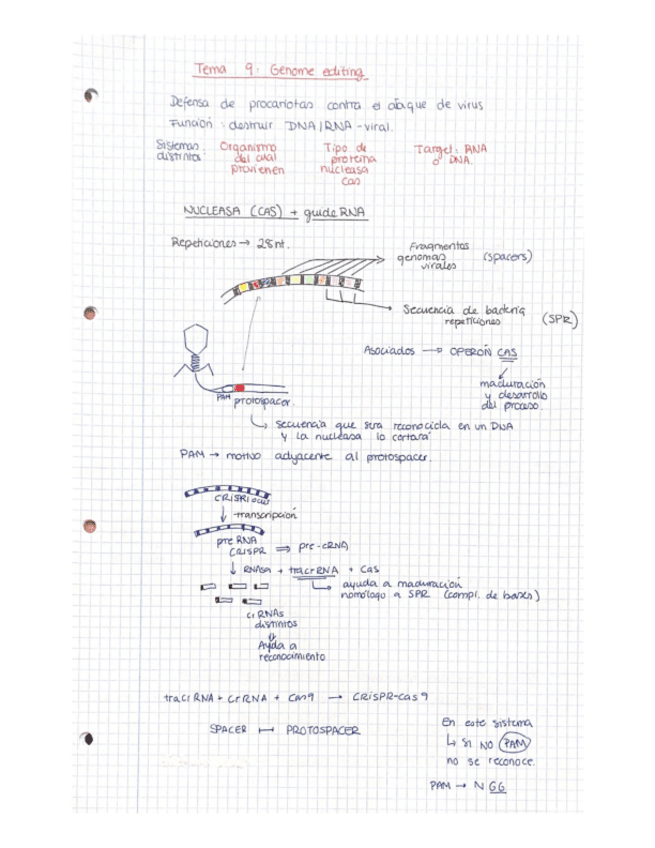 Tema 9: Genome editing
Defensa de procariotas contra el ataque de virus
Función: destruir DNA/RNA-viral.
Sistemas distintos:
Organismo del cual provienen
Tipo de proteína nucleasa cas
Target: RNA o DNA.
NUCLEASA (CAS) + guide RNA
Repeticiones → 28 nt.
Fragmentos genomas virales (spacers)
Secuencia de bacteria repeticiones (SPR)
Asociados → OPERÓN CAS
maduración y desarrollo del proceso.
PAM protospacer.
↳ Secuencia que sera reconocida en un DNA
y la nucleasa lo cortará
PAM → motivo adyacente al protospacer.
CRISPR
↓ transcripción
pre RNA CRISPR ⇒ pre-cRNA
↓ RNasa + tracrRNA + Cas
↳ ayuda a maduración
homólogo a SPR (compl. de bases)
crRNAs
distintos
⇓
Ayuda a
reconocimiento
tracrRNA + crRNA + Cas9 → CRISPR-cas9
SPACER ↦ PROTOSPACER
En este sistema
↳ si NO PAM
no se reconoce.
PAM → N GG